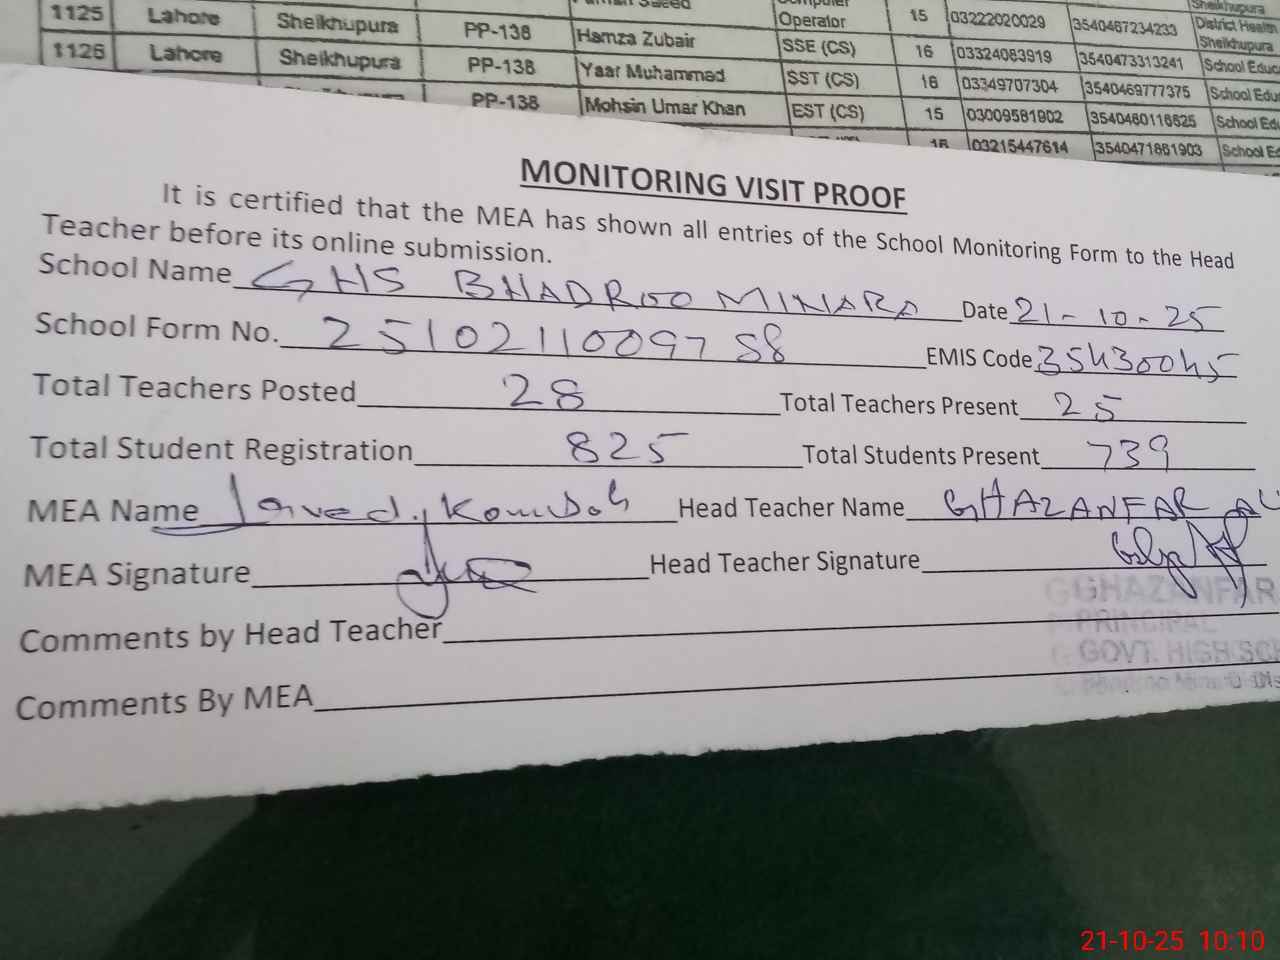 Sheikhupura
1125 Lahore Sheikhupura PP-138 Hamza Zubair Operator 15 03222020029 3540467234233 District Health
Sheikhupura
1126 Lahore Sheikhupura PP-138 Yaar Muhammad SSE (CS) 16 03324083919 3540473313241 School Educ
PP-138 Mohsin Umar Khan SST (CS) 16 03349707304 3540469777375 School Edu
EST (CS) 15 03009581902 3540460116625 School Edu
16 03215447614 3540471861903 School E
MONITORING VISIT PROOF
It is certified that the MEA has shown all entries of the School Monitoring Form to the Head
Teacher before its online submission.
School Name GHS BHADROO MINARA Date 21-10-25
School Form No. 2510211009758 EMIS Code 35430045
Total Teachers Posted 28 Total Teachers Present 25
Total Student Registration 825 Total Students Present 739
MEA Name Javed Kamboh Head Teacher Name GHAZANFAR ALI
MEA Signature Head Teacher Signature
GHAZANFAR
Comments by Head Teacher
PRINCIPAL
GOVT. HIGH SCH
Comments By MEA
21-10-25 10:10